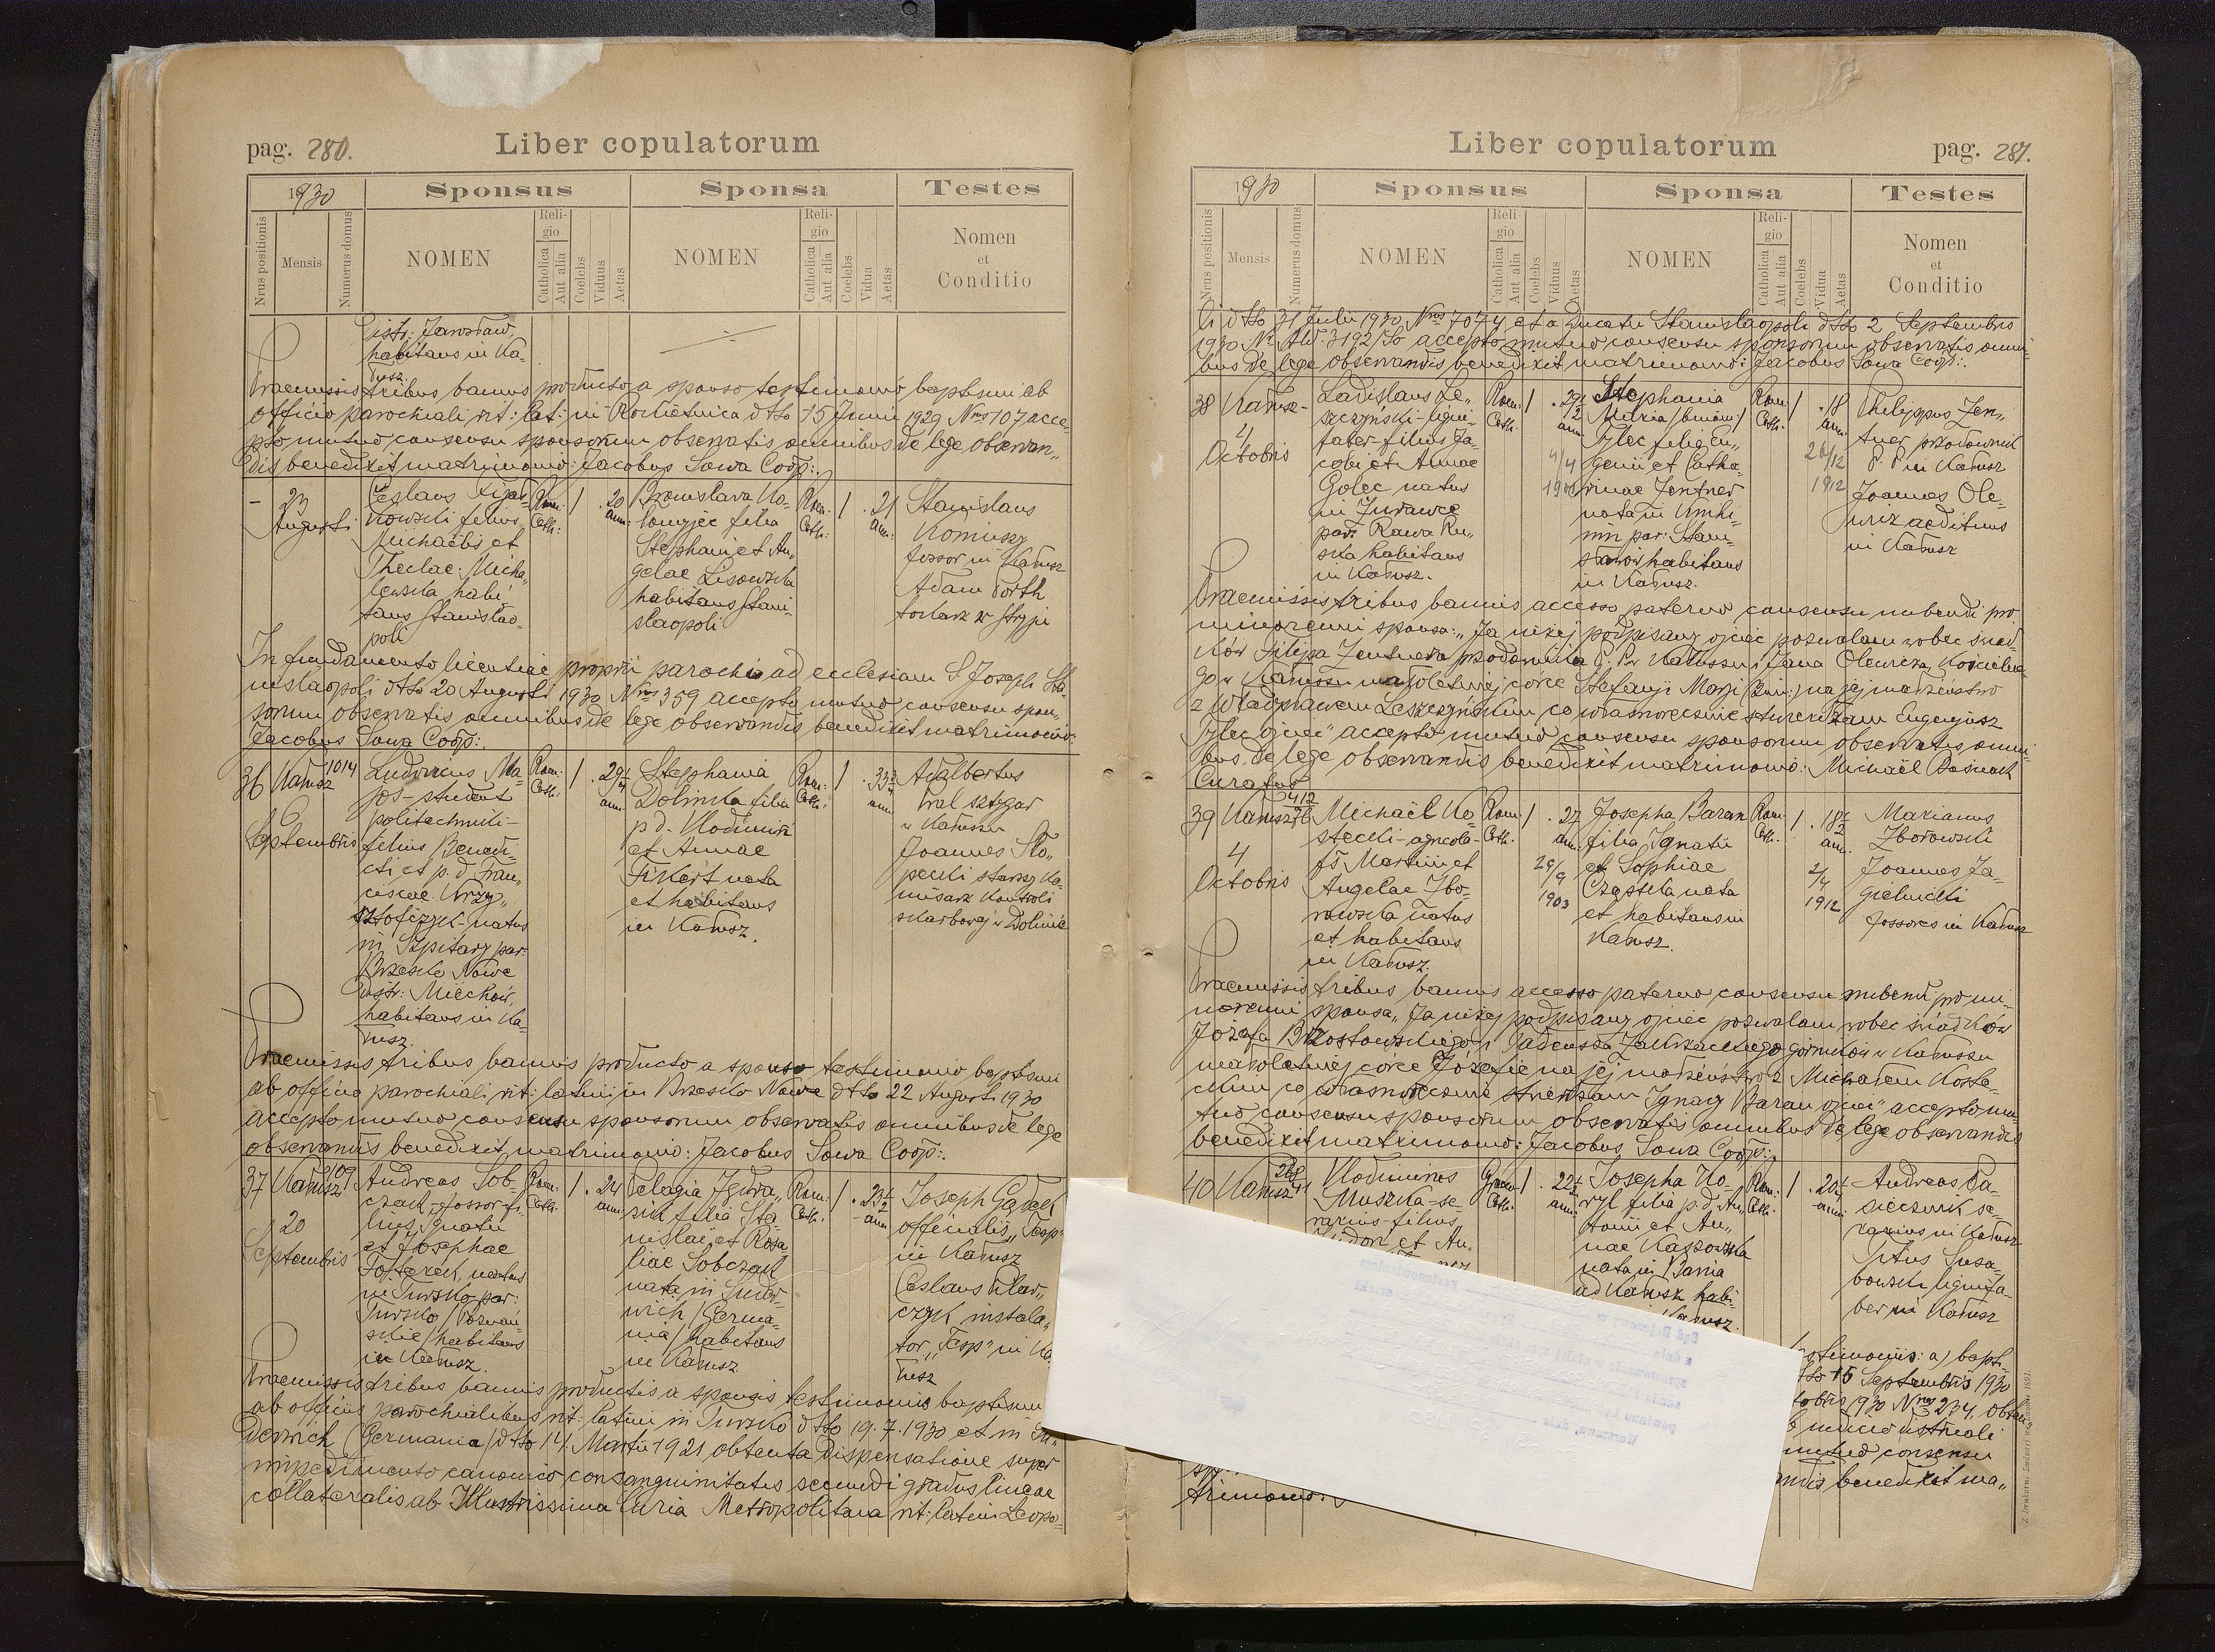 pag. 280.
Liber copulatorum
1930
Sponsus
Sponsa
Testes
Nrus positionis
Mensis
Numerus domus
NOMEN
Religio
Catholica
Aut alia
Coelebs
Viduus
Aetas
NOMEN
Religio
Catholica
Aut alia
Coelebs
Vidua
Aetas
Nomen
et
Conditio
distr: Jarosław,
habitans in Ka-
łusz.
Praemissis tribus bannis producto a sponso testimonio baptismi ab
officio parochiali rit: lat: in Rokietnica dtto 15 Junii 1929 Nrus 107 acce-
pto mutuo consensu sponsorum observatis omnibus de lege observan-
dis benedixit matrimonio: Jacobus Sowa Coop:.
-
23
Augusti
Česlaus
kowski filius
Michaëlis et
Theclae Micha-
lewska habi-
tans Stanisłao-
poli
Rom:
Cath:
1
. 20
ann:
Bronislava Ko-
filia
Stephani et An-
gelae Lisowska
habitans Stani-
slaopoli
Rom:
Cath:
1
. 21
ann:
Stanislaus
Komuszy
fossor in Kałusz
Adam
w Stryju
In fundamento licentiae proprii parochi ad ecclesiam S Joseph Sta-
nislaopoli dtto 20 Augusti 1930 Nrus 359 accepto mutuo consensu spon-
sorum observatis omnibus de lege observandis benedixit matrimonio:
Jacobus Sowa Coop:.
36
Kałusz
1014
6
Septembris
Ludovicus Ma-
jos - student
politechniki -
filius Benedi-
cti et p. d. Fran-
ciscae Krzy-
sztofczyk - natus
in Szpitary par:
Brzesko Nowe
distr: Miechów,
habitans in Ka-
łusz.
Rom:
Cath:
1
. 29¼
ann.
Stephania
Dolinska filia
p d. Vlodimiri
et Annae
Fikert nata
et habitans
in Kałusz.
Rom:
Cath:
1
. 33¾
ann
Adalbertus
Wal sztygar
w Kałuszu
Joannes Sło-
pecki starszy ko-
misarz kontroli
skarbowej w Dolinie
Praemissis tribus bannis producto a sponso testimonio baptismi
ab officio parochiali rit: latini in Brzesko Nowe dtto 22 Augusti 1930
accepto mutuo consensu sponsorum observatis omnibus de lege
observandis benedixit matrimonio: Jacobus Sowa Coop:.
37
Kałusz
2109
20
Septembris
Andreas Sob-
czak - fossor - fi-
lius Ignatii
et Josephae
natus
in Tursko par:
Tursko /Poznań-
skie/ habitans
in Kałusz.
Rom:
Cath:
1
. 24
ann
Pelagia
filia Sta-
nislai et Rosa-
liae Sobczak
nata in
wich /Germa-
nia/ habitans
in Kałusz
Rom:
Cath:
1
. 23½
ann
Joseph
officialis „Tesp"
in Kałusz
Česlaus Wlar-
czyk instala-
tor „Tesp" in Ka-
łusz
Praemissis tribus bannis productis a sponsis testimoniis baptismi
ab officiis parochialibus rit: latini in Tursko dtto 19.7.1930 et in
derwich (Germania) dtto 14. Martii 1921 obtenta dispensatione super
impedimento canonico consanguinitatis secundi gradus lineae
collateralis ab Illustrissima Curia Metropolitana rit: latini Leopo-
Liber copulatorum
pag. 281.
1930
Sponsus
Sponsa
Testes
Nrus positionis
Mensis
Numerus domus
NOMEN
Religio
Catholica
Aut alia
Coelebs
Viduus
Aetas
NOMEN
Religio
Catholica
Aut alia
Coelebs
Vidua
Aetas
Nomen
et
Conditio
li dtto 31 Julii 1930 Nrus 7074 et a Ducatu Stanislaopoli dtto 2 Septembris
1930 Nr. AW. 3192/So accepto mutuo consensu sponsorum observatis omni-
bus de lege observandis benedixit matrimonio: Jacobus Sowa Coop:.
38
Kałusz -
4
Octobris
Ladislaus Le-
szczyński - ligni-
faber - filius Ja-
cobi et Annae
Golec natus
in Żurawce
par: Rawa Ru-
ska habitans
in Kałusz.
Rom:
Cath.
1
. 29½
ann
4/4
Stephania
Maria /binom:/
Tylec filia Eu-
genii et Catha-
rinae Zentner
nata in Knihi-
nin par: Stani-
sławów habitans
in Kałusz.
Rom:
Cath:
1
. 18
ann.
26/12
1912
Philippus Zen-
tner przodownik
P. P. in Kałusz
Joannes Ole-
wicz aedituus
in Kałusz
Praemissis tribus bannis accesso paterno consensu nubendi pro
minorenni sponsa: „Ja niżej podpisany ojciec pozwalam wobec świad-
ków Filipa Zentnera przodownika P. P. w Kałuszu i Jana Olewicza, kościelne-
go w Kałuszu małoletniej córce Stefanji Marji (binom:) na jej małżeństwo
z Władysławem Leszczyńskim co własnoręcznie stwierdzam Eugenjusz
Tylec ojciec" accepto mutuo consensu sponsorum observatis omni-
bus de lege observandis benedixit matrimonio: Michaël Baśniak
Curatus
39
Kałusz
412
4
Octobris
Michaël Ko-
stecki - agricola -
fs Martini et
Angelae Zbo-
rowska natus
et habitans
in Kałusz.
Rom:
Cath.
1
. 27
ann.
29/9
1903
Josepha Baran
filia Ignatii
et Sophiae
Cząstka nata
et habitans in
Kałusz.
Rom:
Cath:
1
. 18½
ann.
2/4
1912
Marianus
Zborowski
Joannes Ja-
gielnicki
fossores in Kałusz
Praemissis tribus bannis accesso paterno consensu nubendi pro mi-
norenni sponsa „Ja niżej podpisany ojciec pozwalam wobec świadków
Józefa Brzostowskiego i Tadeusza Zakrzackiego górników w Kałuszu
małoletniej córce Józefie na jej małżeństwo z Michałem Koste-
ckim co własnoręcznie stwierdzam Ignacy Baran ojciec" accepto mu-
tuo consensu sponsorum observatis omnibus de lege observandis
benedixit matrimonio: Jacobus Sowa Coop:.
40
Kałusz
Vlodimirus
Muszka - se-
rarius - filius
et An-
Graec:
Cath:
1
. 22½
ann
Josepha Ko-
ryl filia p.d. An-
tonii et An-
nae Kaszowska
nata in Bania
ad Kałusz habi-
Kałusz.
Rom:
Cath.
1
. 20¼
ann
Andreas Pa-
siecznik se-
rarius in Kałusz
Titus Susa-
bowski lignifa-
ber in Kałusz
testimoniis: a) bapt.
dtto 15 Septembris 1930
1930 Nrus 234, obten-
mutuo consensu
benedixit ma-
trimonio: